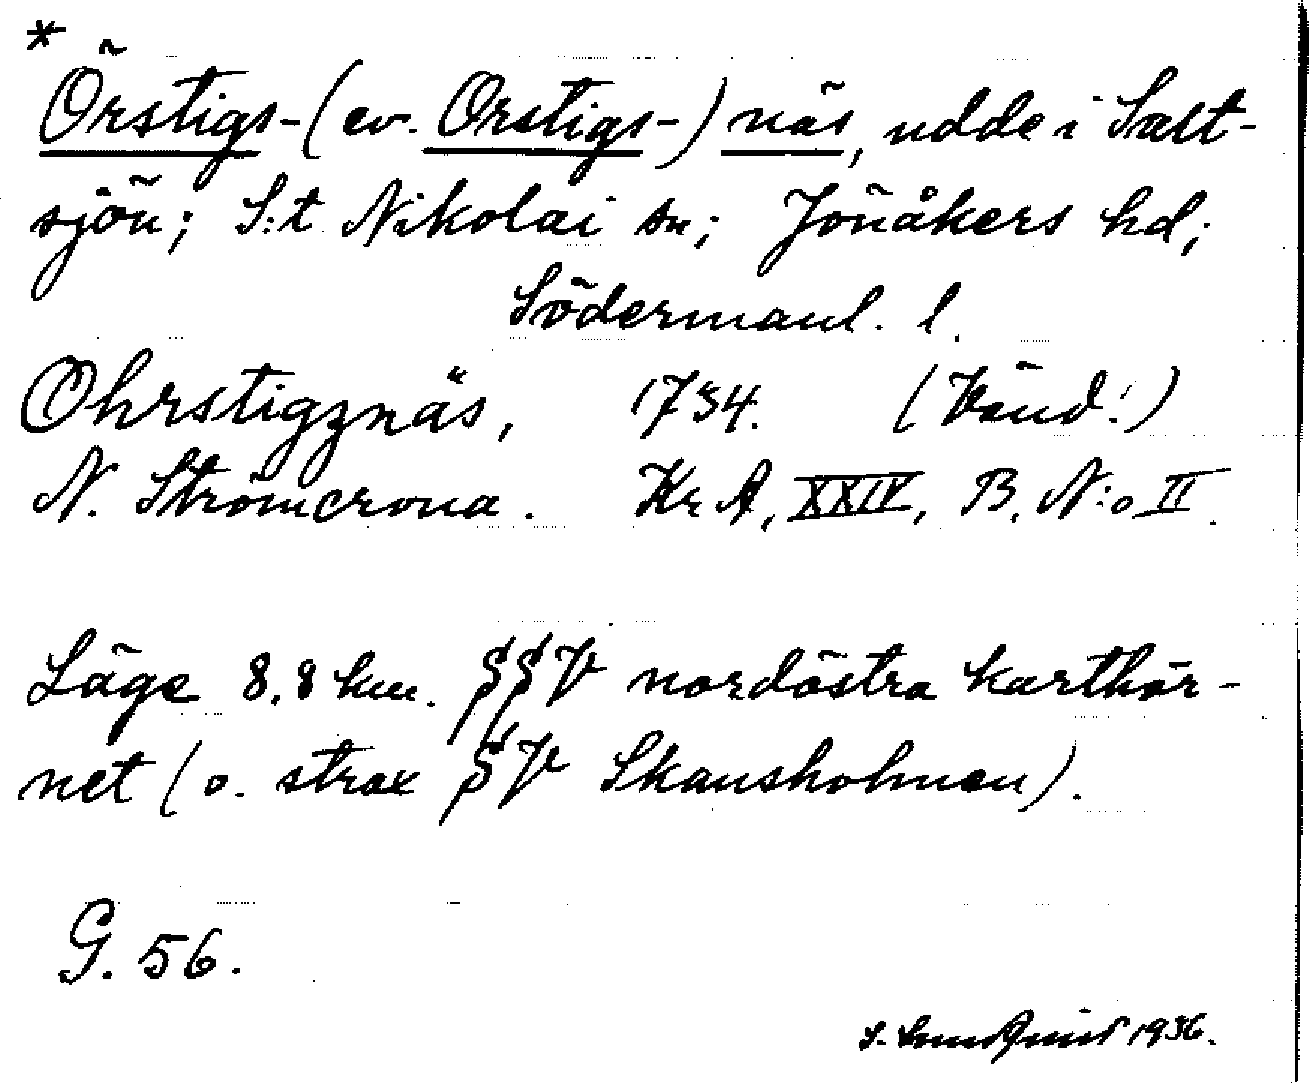 *
Örstigs-(ev. Orstigs-) näs, udde i Salt-
sjön; S:t Nikolai sn; Jönåkers hd;
Södermanl. l.
Ohrstigznäs, 1734. (Vänd!)
N. Strömcrona. KrA, XXIV, B. N:o II.
Läge 8,8 km. SSV nordöstra karthör-
net (o. strax SV Skansholmen).
G. 56.
1936.